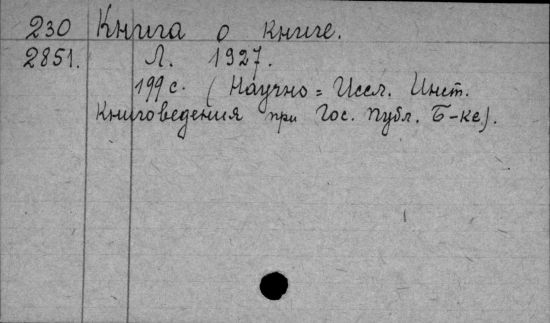 230 Книга о книге.
2851. Л. 1927.
199 с. (Научно=Иссл. Инст.
Книговедения при Гос. Публ. Б-ке).